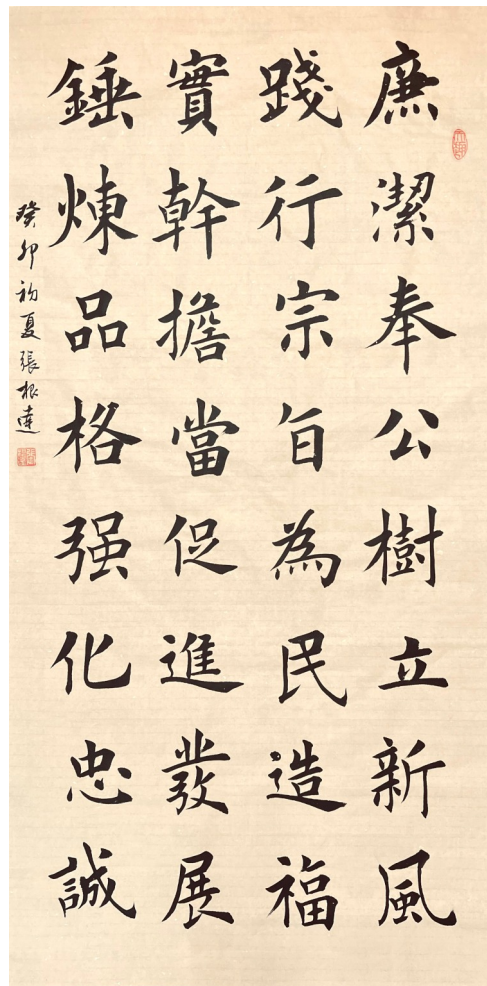 廉潔奉公樹立新風
踐行宗旨為民造福
實幹擔當促進發展
錘煉品格强化忠誠
癸卯初夏張根達